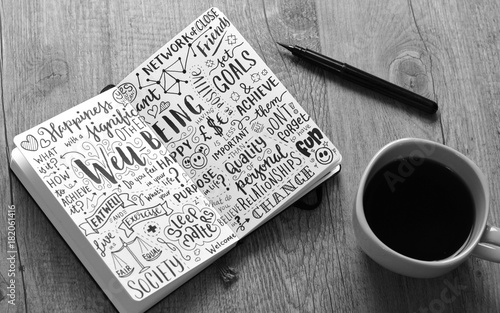 NETWORK OF CLOSE
Friends
YES
Happiness
with a
significant
OTHER
WHAT
HOW
TO
ACHIEVE
Well BEING
set
GOALS
& ACHIEVE
them
THINK
HAPPY
£€
$
IMPORTANT
DON'T
forget
fun
Quality
personal
RELATIONSHIPS
PURPOSE
CHANGE
Welcome
Do you feel
in your
life?
What's
EAT WELL
AND
Exercise
Sleep
MATTERS
Live
in a
FAIR
EQUAL
SOCIETY
© 182061416
Adobe Stock